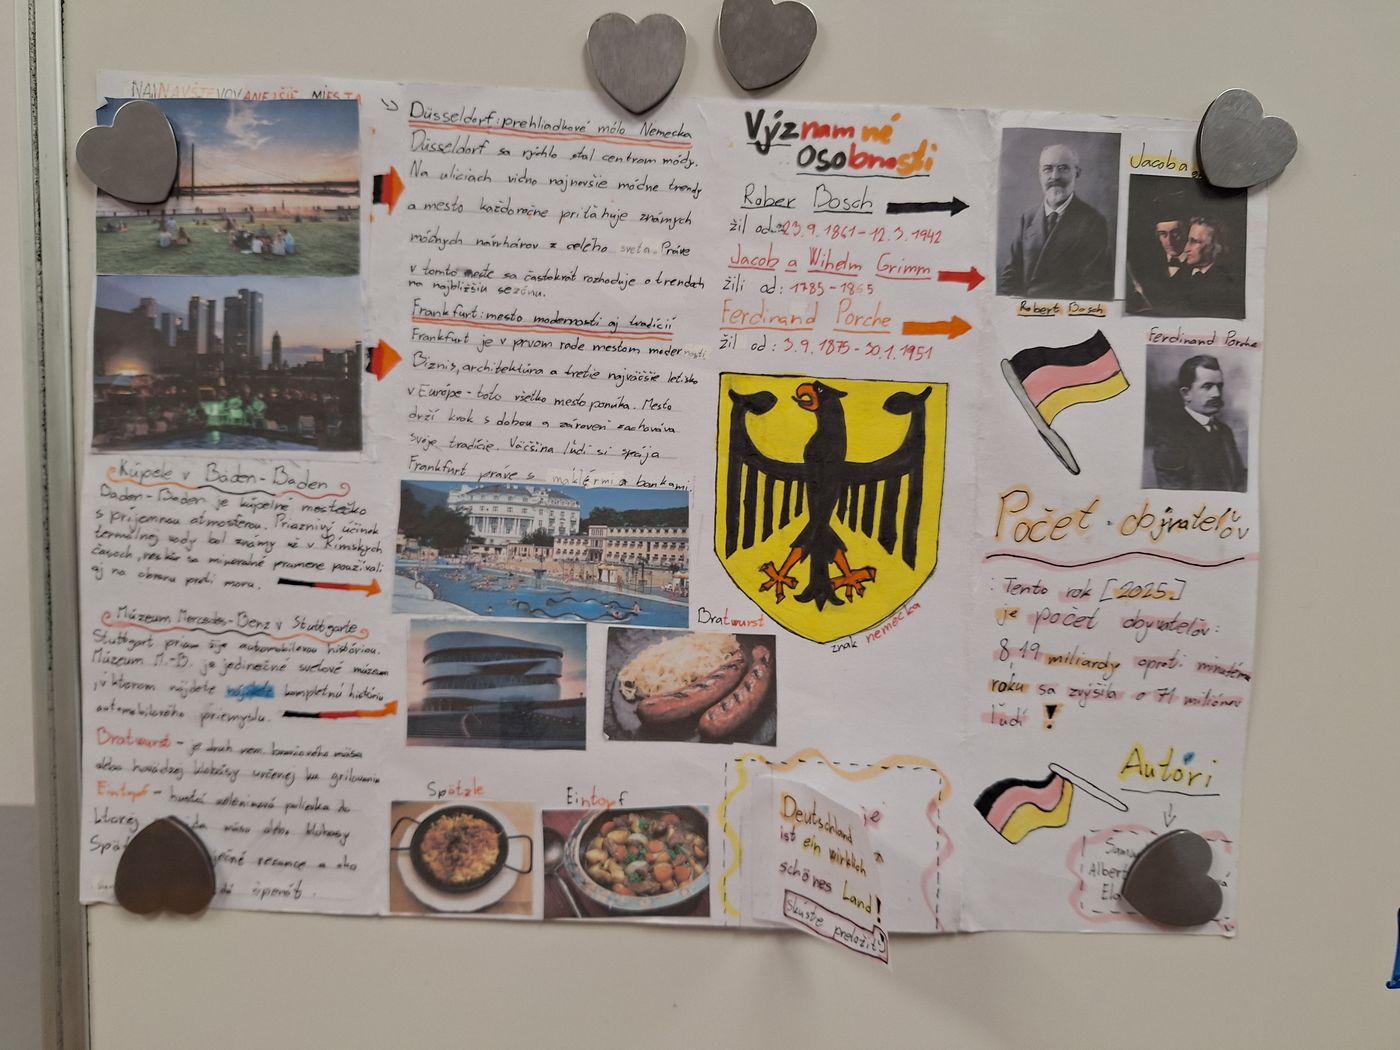 NAJNAVŠTEVOVANEJŠIE MIESTA
Kúpele v Báden-Báden
Baden-Baden je kúpeľné mestečko
s príjemnou atmosférou. Priaznivý účinok
termálnej vody bol známy už v Rímskych
časoch, neskôr sa minerálne pramene používali
aj na obranu proti moru.
Múzeum Mercedes-Benz v Stuttgarte
Stuttgart priam žije automobilovou históriou.
Múzeum M.-B. je jedinečné svetové múzeum
, v ktorom nájdete kompletnú históriu
automobilového priemyslu.
Bratwurst - je druh nem. bravčového mäsa
alebo hovädzej klobásy určenej ku grilovaniu
Eintopf - hustá zeleninová polievka do
ktorej mäso alebo klobásy
Spät
špenát.
Düsseldorf: prehliadkové mólo Nemecka
Düsseldorf sa rýchlo stal centrom módy.
Na uliciach vidno najnovšie módne trendy
a mesto každoročne priťahuje známych
módnych návrhárov z celého sveta. Práve
v tomto meste sa častokrát rozhoduje o trendoch
na najbližšiu sezónu.
Frankfurt: mesto modernosti aj tradícií
Frankfurt je v prvom rade mestom modernosti
Biznis, architektúra a tretie najväčšie letisko
v Európe - toto všetko mesto ponúka. Mesto
drží krok s dobou a zároveň zachováva
svoje tradície. Väčšina ľudí si spája
Frankfurt práve s maklérmi a bankami.
Bratwurst
Spätzle
Eintopf
Významné
osobnosti
Rober Bosch
žil od: 23.9.1861-12.3.1942
Jacob a Wihelm Grimm
žili od: 1785-1865
Ferdinand Porche
žil od: 3.9.1875-30.1.1951
znak nemecka
je
Deutschland
ist ein wirklich
schönes Land!
Skúste preložiť
Jacob a
Robert Bosch
Ferdinand Porche
Počet obyvateľov
: Tento rok [2025]
je počet obyvateľov:
8 19 miliardy oproti minulému
roku sa zvýšila o 71 miliónov
ľudí !
Autori
Albert